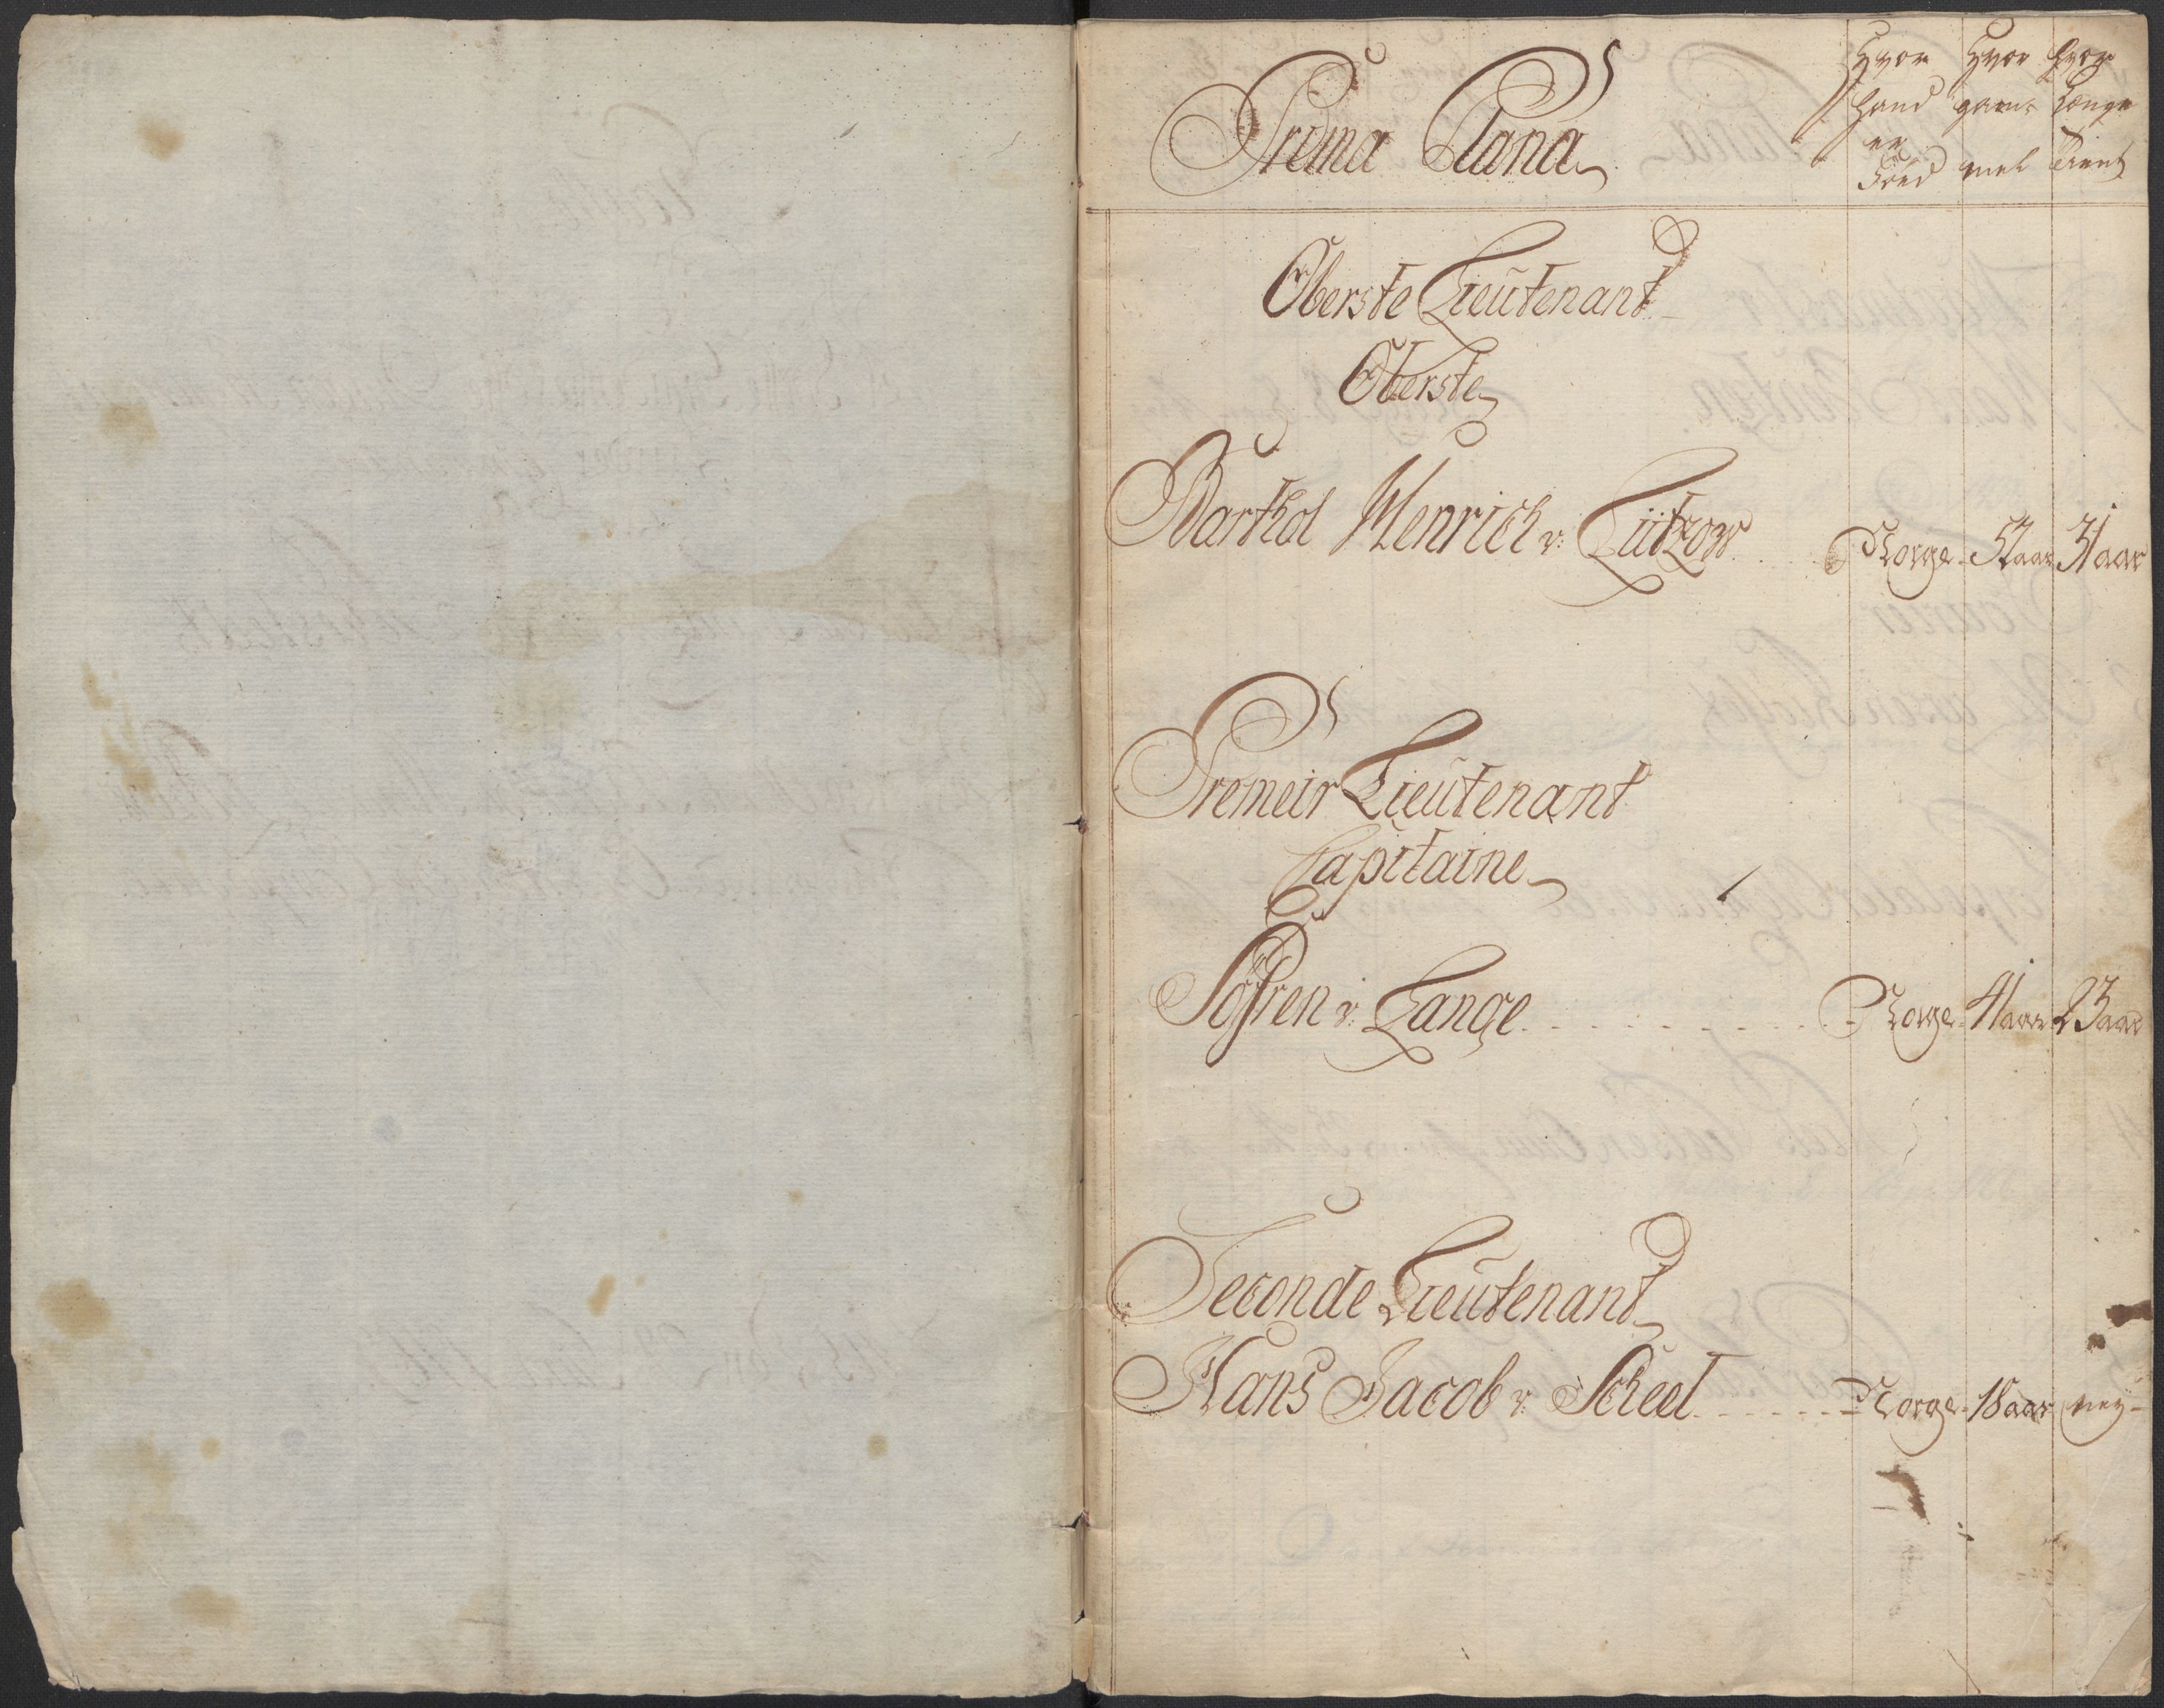 Prima Plana
Hvor Hand er Föed
Hvor gam̄el
Hvor Længe Tient
Oberste Lieutenant
Oberste
Barthol Henrich v: Lützow Norge 51 aar 31 aar
Premeir Lieutenant
Capitaine
Söfren v: Lange Norge 41 aar 23 aar
Seconde Lieutenant
Hans Jacob v: Scheel Norge 18 aar ney